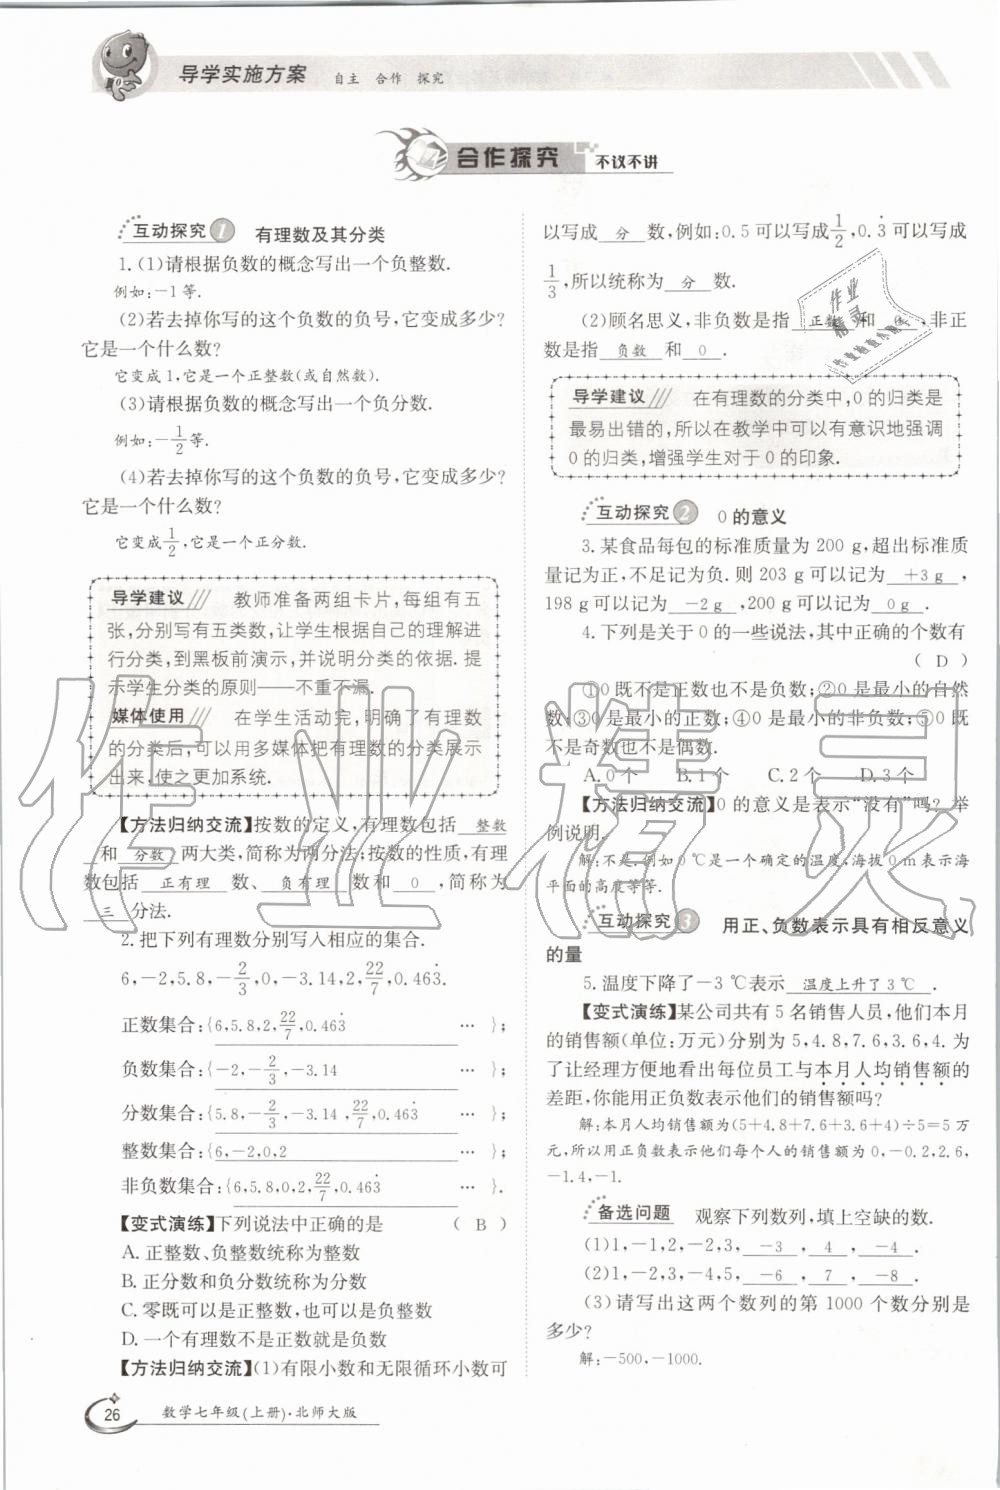 导学实施方案 自主 合作 探究
合作探究 不议不讲
互动探究1 有理数及其分类
1.(1)请根据负数的概念写出一个负整数.
例如:-1等.
(2)若去掉你写的这个负数的负号,它变成多少?
它是一个什么数?
它变成1,它是一个正整数(或自然数).
(3)请根据负数的概念写出一个负分数.
例如:-1/2等.
(4)若去掉你写的这个负数的负号,它变成多少?
它是一个什么数?
它变成1/2,它是一个正分数.
导学建议 教师准备两组卡片,每组有五
张,分别写有五类数,让学生根据自己的理解进
行分类,到黑板前演示,并说明分类的依据.提
示学生分类的原则——不重不漏.
媒体使用 在学生活动完,明确了有理数
的分类后,可以用多媒体把有理数的分类展示
出来,使之更加系统.
【方法归纳交流】按数的定义,有理数包括 整数
和 分数 两大类,简称为两分法;按数的性质,有理
数包括 正有理 数、 负有理 数和 0 ,简称为
三 分法.
2.把下列有理数分别写入相应的集合.
6,-2,5.8,-2/3,0,-3.14,2,22/7,0.463̇.
正数集合:{6,5.8,2,22/7,0.463̇ … };
负数集合:{-2,-2/3,-3.14 … };
分数集合:{5.8,-2/3,-3.14,22/7,0.463̇ … };
整数集合:{6,-2,0,2 … };
非负数集合:{6,5.8,0,2,22/7,0.463̇ … }.
【变式演练】下列说法中正确的是 ( B )
A.正整数、负整数统称为整数
B.正分数和负分数统称为分数
C.零既可以是正整数,也可以是负整数
D.一个有理数不是正数就是负数
【方法归纳交流】(1)有限小数和无限循环小数可
26 数学七年级(上册)·北师大版
以写成 分 数,例如:0.5可以写成1/2,0.3̇可以写成
1/3,所以统称为 分 数.
(2)顾名思义,非负数是指 正数 和 0 ,非正
数是指 负数 和 0 .
导学建议 在有理数的分类中,0的归类是
最易出错的,所以在教学中可以有意识地强调
0的归类,增强学生对于0的印象.
互动探究2 0的意义
3.某食品每包的标准质量为200 g,超出标准质
量记为正,不足记为负.则203 g可以记为 +3 g ,
198 g可以记为 -2 g ,200 g可以记为 0 g .
4.下列是关于0的一些说法,其中正确的个数有
( D )
①0既不是正数也不是负数;②0是最小的自然
数;③0是最小的正数;④0是最小的非负数;⑤0既
不是奇数也不是偶数.
A.0个 B.1个 C.2个 D.3个
【方法归纳交流】0的意义是表示“没有”吗?举
例说明.
解:不是.例如0 ℃是一个确定的温度,海拔0 m表示海
平面的高度等等.
互动探究3 用正、负数表示具有相反意义
的量
5.温度下降了-3 ℃表示 温度上升了3 ℃ .
【变式演练】某公司共有5名销售人员,他们本月
的销售额(单位:万元)分别为5,4.8,7.6,3.6,4.为
了让经理方便地看出每位员工与本月人均销售额的
差距,你能用正负数表示他们的销售额吗?
解:本月人均销售额为(5+4.8+7.6+3.6+4)÷5=5万
元,所以用正负数表示他们每个人的销售额为0,-0.2,2.6,
-1.4,-1.
备选问题 观察下列数列,填上空缺的数.
(1)1,-1,2,-2,3, -3 , 4 , -4 .
(2)1,-2,3,-4,5, -6 , 7 , -8 .
(3)请写出这两个数列的第1000个数分别是
多少?
解:-500,-1000.
作业精灵
作业
精灵